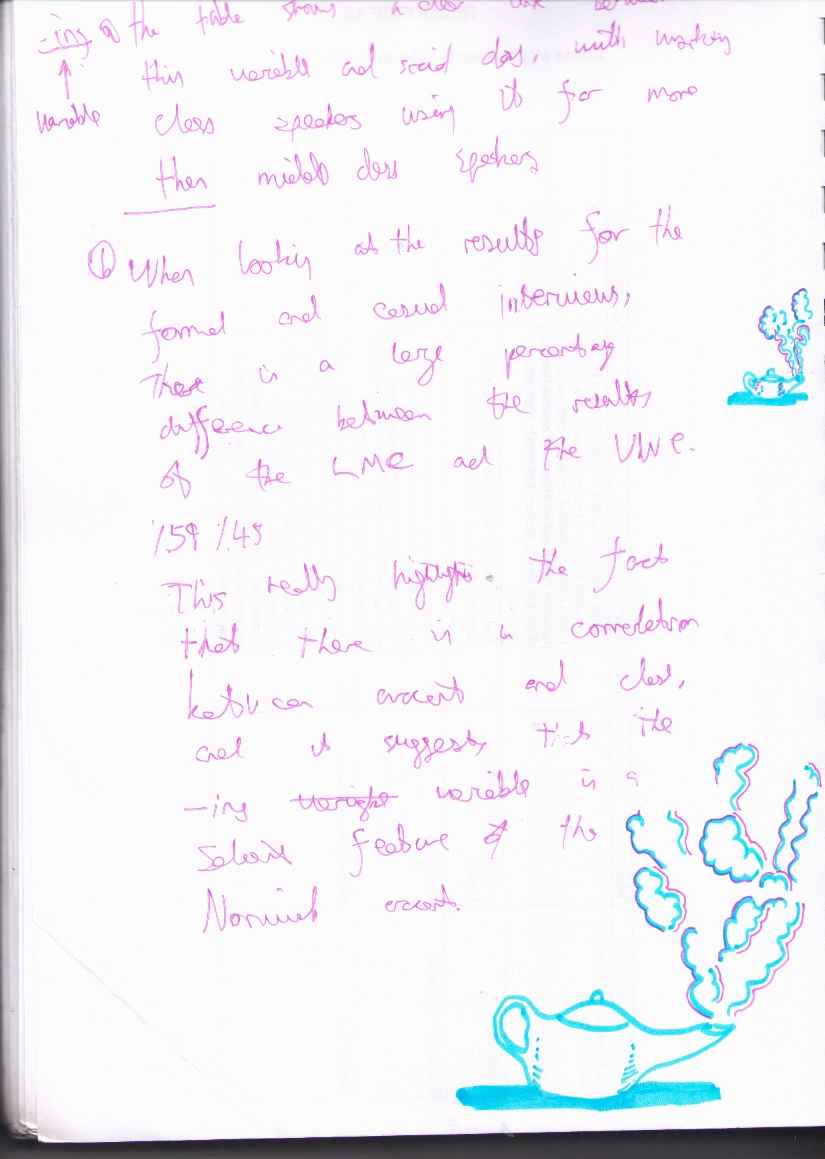 -ing a the table shows a clear link between
this variable and social class, with working
variable class speakers using it far more
then middle class speakers
b When looking at the results for the
formal and casual interviews,
there is a large percentage
difference between the results
of the LMC and the UWC.
%59 %45
This really highlights the fact
that there is a correlation
between accent and class,
and it suggests that the
-ing variable is a
Salient feature of the
Norwich accent.